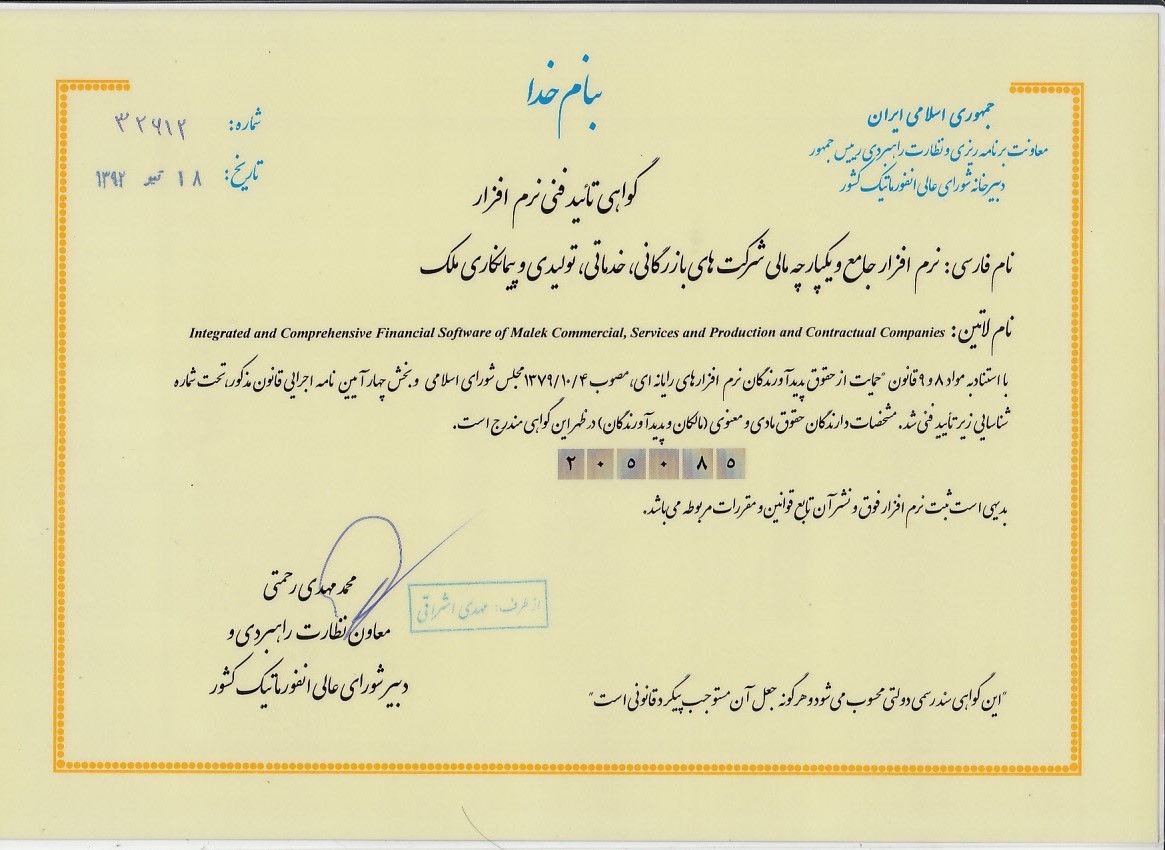 بنام خدا
جمهوری اسلامی ایران
معاونت برنامه ریزی و نظارت راهبردی رییس جمهور
دبیرخانه شورای عالی انفورماتیک کشور
شماره: ۳۲۶۱۲
تاریخ: ۱۸ تیر ۱۳۹۲
گواهی تائید فنی نرم افزار
نام فارسی: نرم افزار جامع و یکپارچه مالی شرکت های بازرگانی، خدماتی، تولیدی و پیمانکاری ملک
نام لاتین: Integrated and Comprehensive Financial Software of Malek Commercial, Services and Production and Contractual Companies
با استناد به مواد ۸ و ۹ قانون "حمایت از حقوق پدیدآورندگان نرم افزارهای رایانه ای، مصوب ۱۳۷۹/۱۰/۴ مجلس شورای اسلامی و بخش چهار آیین نامه اجرایی قانون مذکور، تحت شماره
شناسایی زیر تأیید فنی شد. مشخصات دارندگان حقوق مادی و معنوی (مالکان و پدیدآورندگان) در ظهر این گواهی مندرج است.
۲۰۵۰۸۵
بدیهی است ثبت نرم افزار فوق و نشر آن تابع قوانین و مقررات مربوطه می باشد.
محمد مهدی رحمتی
از طرف: مهدی اشراقی
معاون نظارت راهبردی و
دبیر شورای عالی انفورماتیک کشور
"این گواهی سند رسمی دولتی محسوب می شود و هرگونه جعل آن مستوجب پیگرد قانونی است"